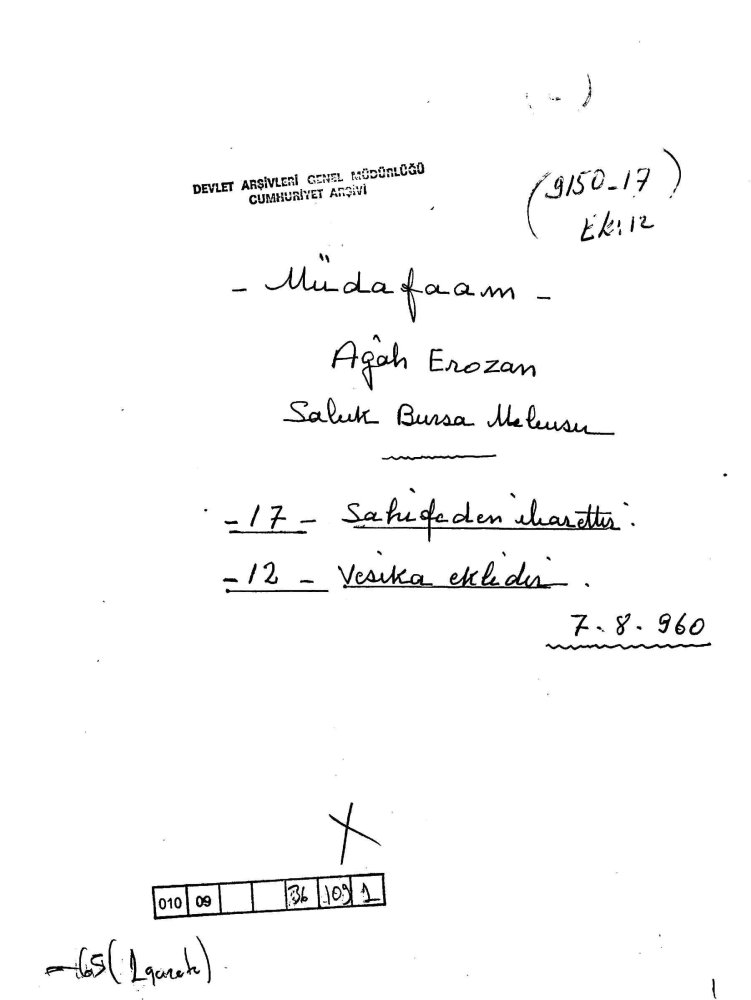 ( - )
DEVLET ARŞİVLERİ GENEL MÜDÜRLÜĞÜ
CUMHURİYET ARŞİVİ
(9150-17)
Ek: 12
- Müdafaam -
Agâh Erozan
Sabık Bursa Mebusu
- 17 - Sahifeden ibarettir.
- 12 - Vesika eklidir.
7.8.960
X
010 09 36 109 1
65 (1 gazete)
1